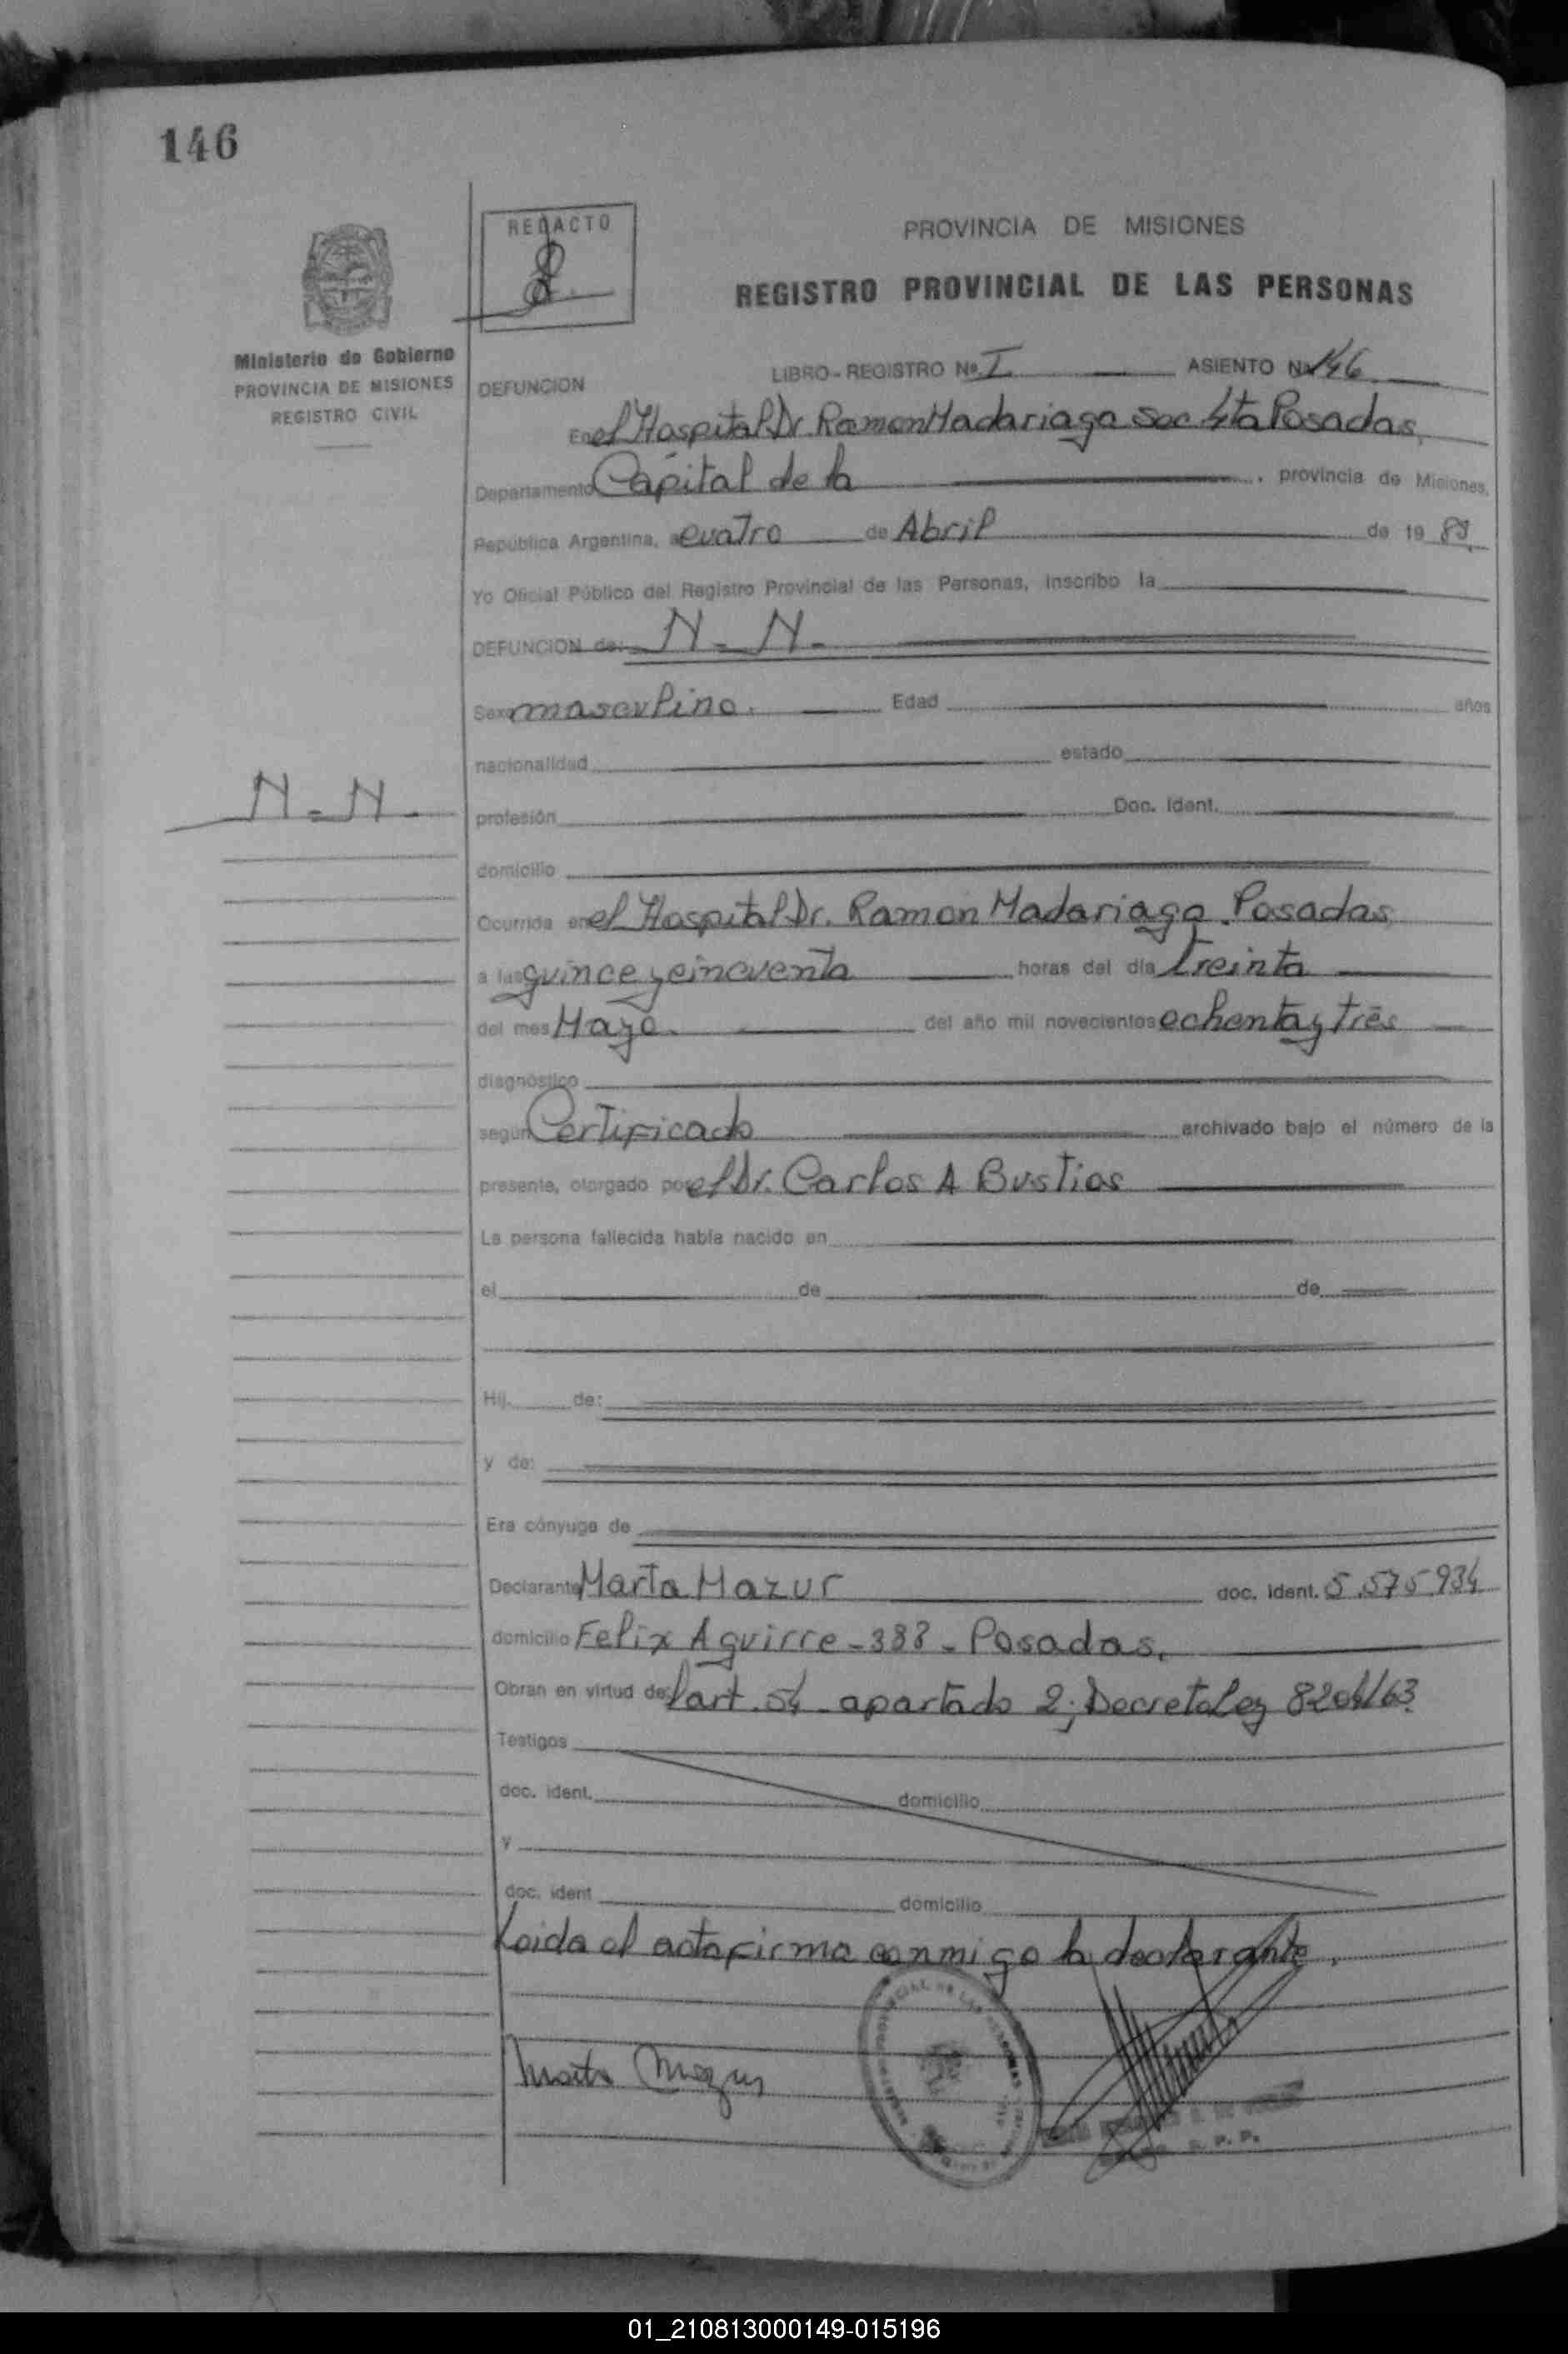 146
REDACTO
PROVINCIA DE MISIONES
REGISTRO PROVINCIAL DE LAS PERSONAS
Ministerio de Gobierno
PROVINCIA DE MISIONES
REGISTRO CIVIL
LIBRO - REGISTRO Nº I ASIENTO Nº 146
DEFUNCION
En el Hospital Dr. Ramon Madariaga Sec 4ta Posadas,
Departamento Capital de la , provincia de Misiones,
República Argentina, a cuatro de Abril de 19 83
Yo Oficial Público del Registro Provincial de las Personas, inscribo la
DEFUNCION de: N-N-
Sexo masculino. Edad años
nacionalidad estado
N-N-
profesión Doc. Ident.
domicilio
Ocurrida en el Hospital Dr. Ramon Madariaga. Posadas
a las quince y cincuenta horas del día treinta
del mes Mayo. del año mil novecientos ochenta y tres
diagnóstico
según Certificado archivado bajo el número de la
presente, otorgado por el Dr. Carlos A Bustios
La persona fallecida había nacido en
el de de
Hij. de:
y de:
Era cónyuge de
Declarante Marta Mazur doc. ident. 5.575.934
domicilio Felix Aguirre - 383 - Posadas.
Obran en virtud de l art. 54 - apartado 2; Decreto Ley 8204/63.
Testigos
doc. ident. domicilio
y
doc. ident domicilio
Leida el acta firma conmigo la declarante.
Marta Mazur
01_210813000149-015196